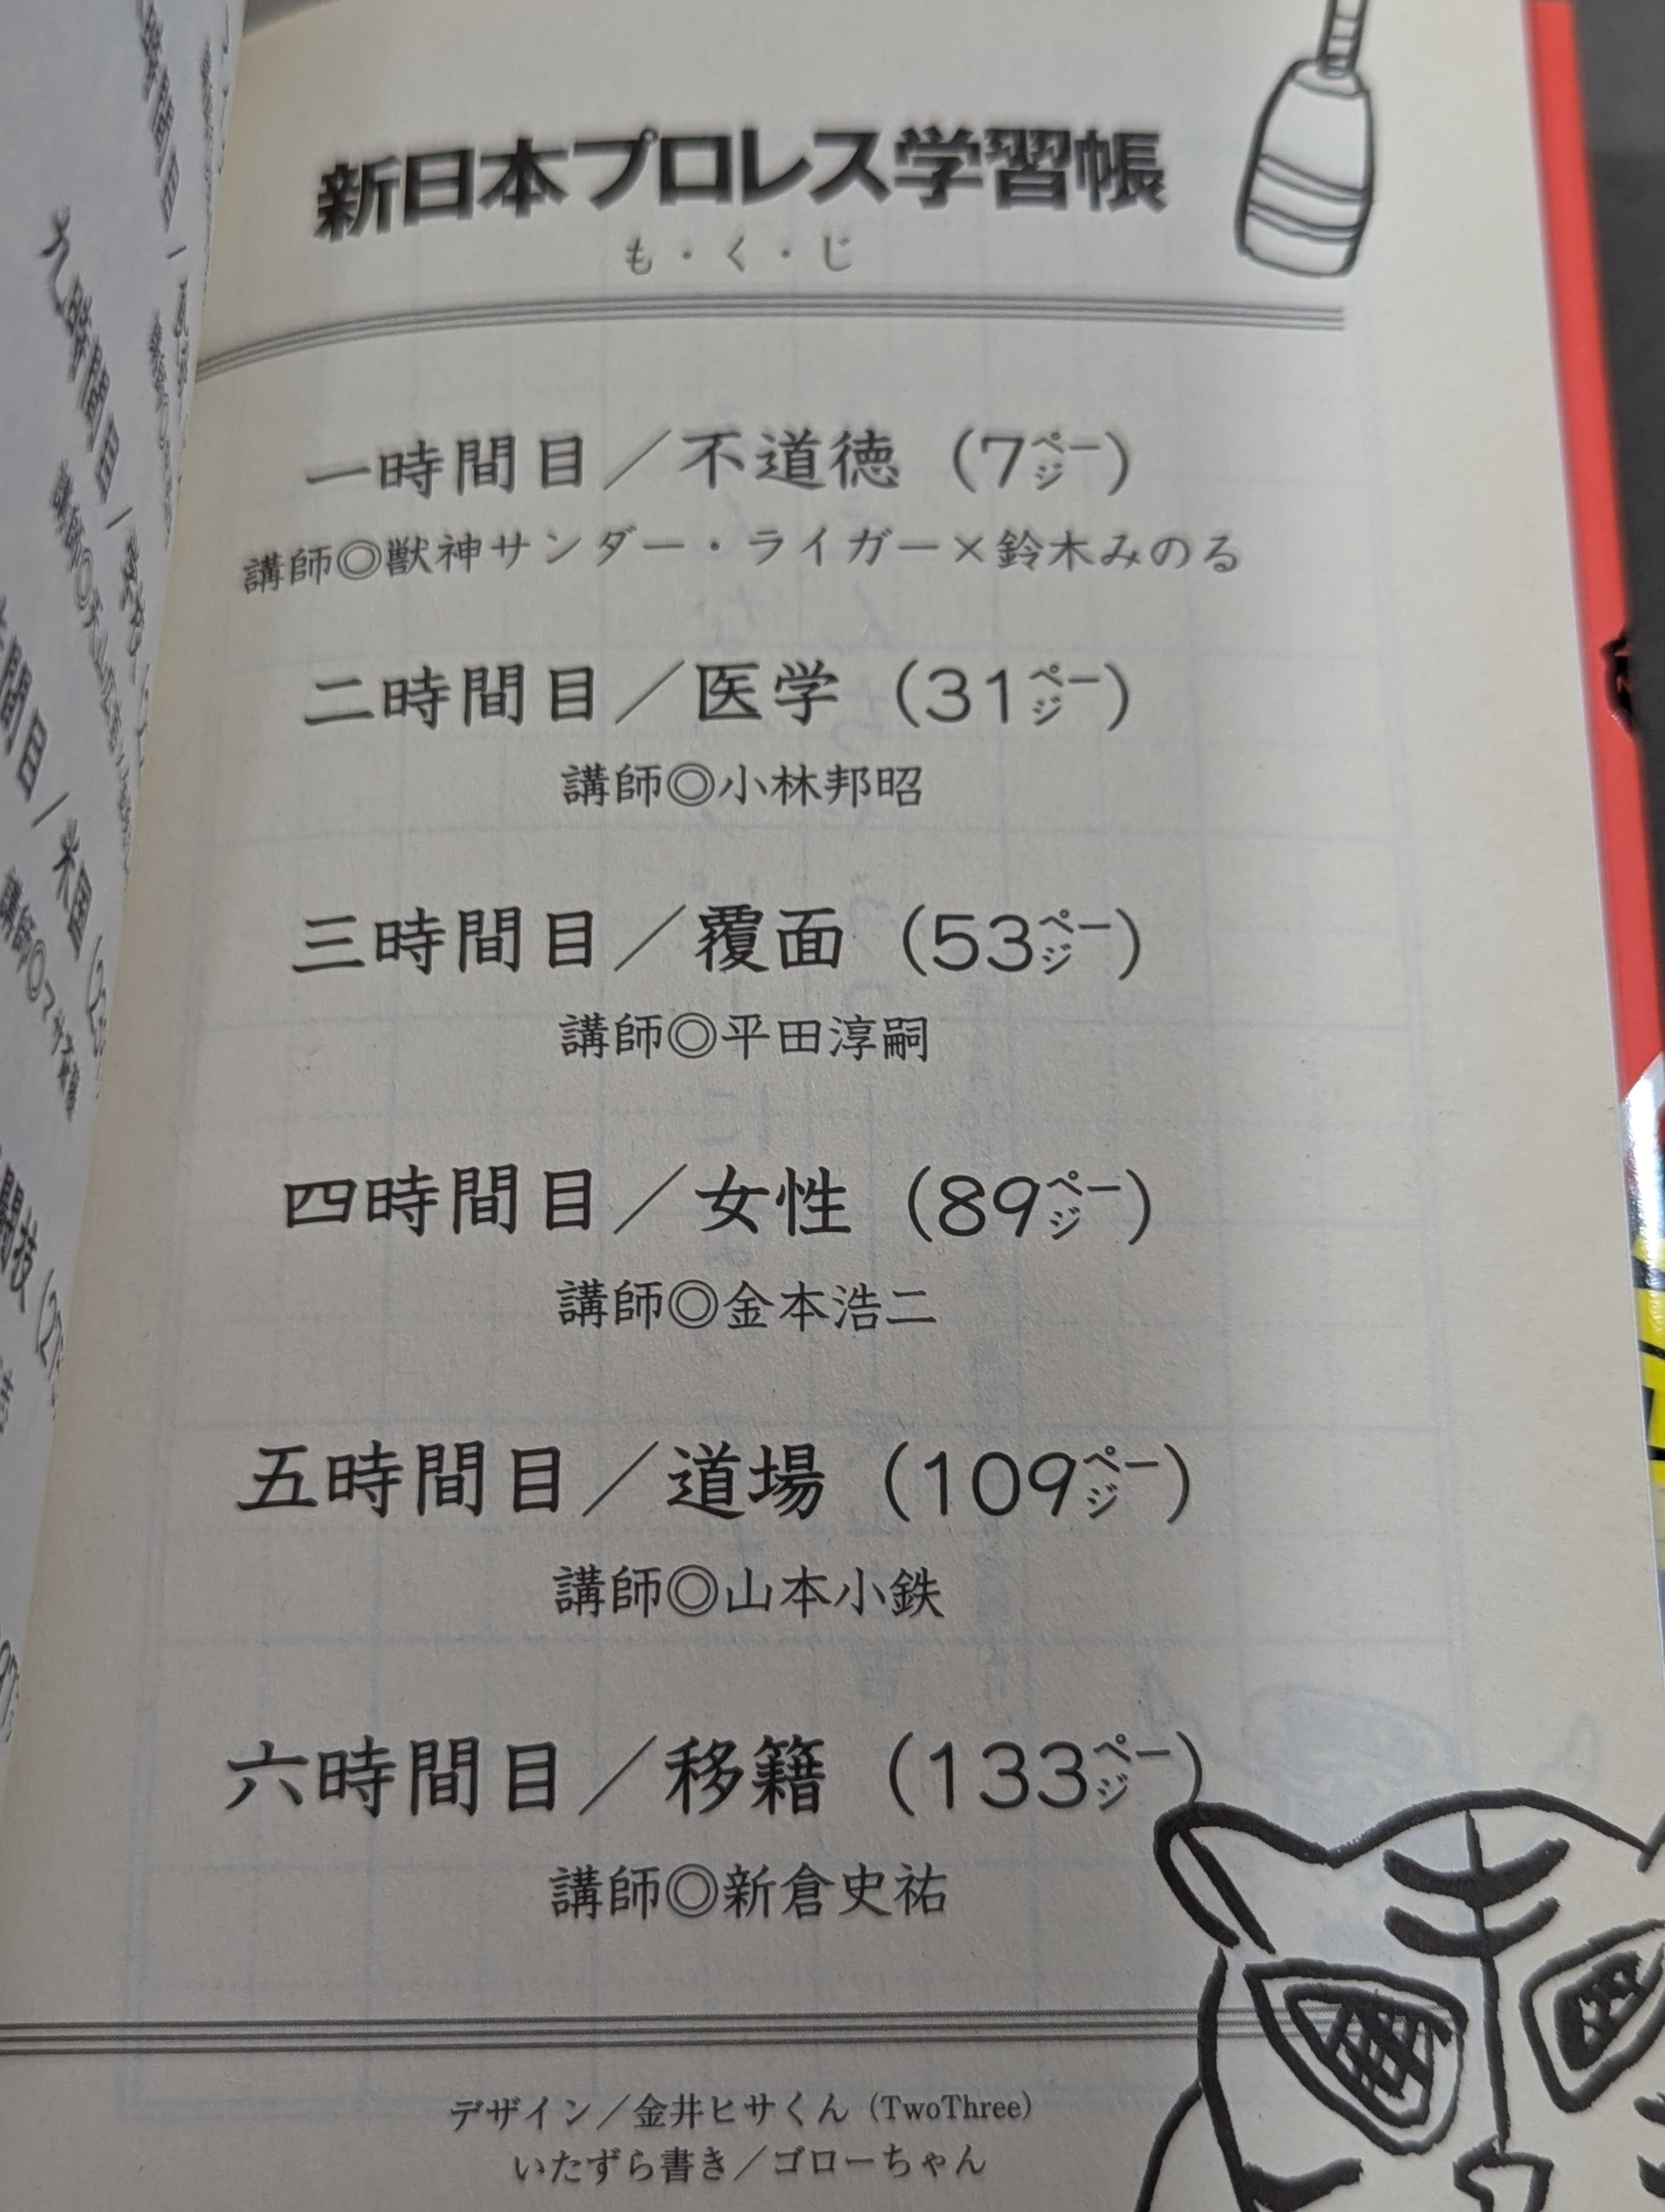 新日本プロレス学習帳
も・く・じ
一時間目／不道徳（7ページ）
講師◎獣神サンダー・ライガー×鈴木みのる
二時間目／医学（31ページ）
講師◎小林邦昭
三時間目／覆面（53ページ）
講師◎平田淳嗣
四時間目／女性（89ページ）
講師◎金本浩二
五時間目／道場（109ページ）
講師◎山本小鉄
六時間目／移籍（133ページ）
講師◎新倉史祐
デザイン／金井ヒサくん（TwoThree）
いたずら書き／ゴローちゃん